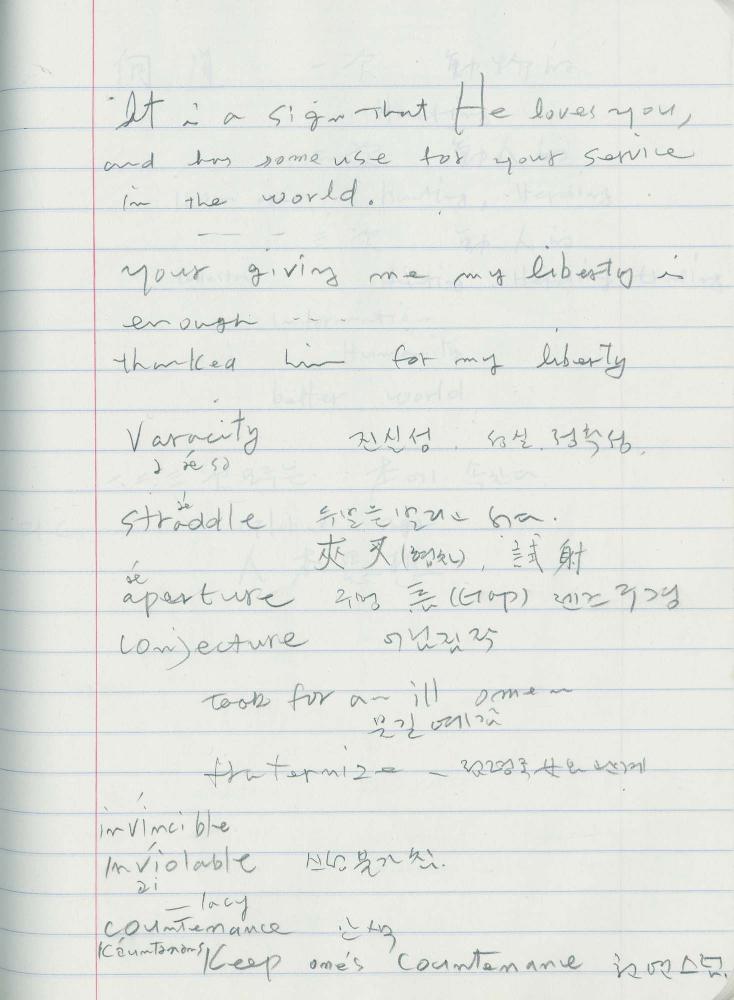 It is a sign that He loves you,
and has some use for your service
in the world.
your giving me my liberty is
enough ....
thanked him for my liberty
Varacity 진실성. 성실. 정확성.
straddle 두발을벌리고 서다.
夾 叉 (협차), 試射
aperture 구멍 틈 (터op) 렌즈구경
conjecture 어림짐작
took for an ill omen
불길예감
fraternize —
invincible
inviolable 신성불가침.
ai
— lacy
countenance 안색
Keep one's countenance